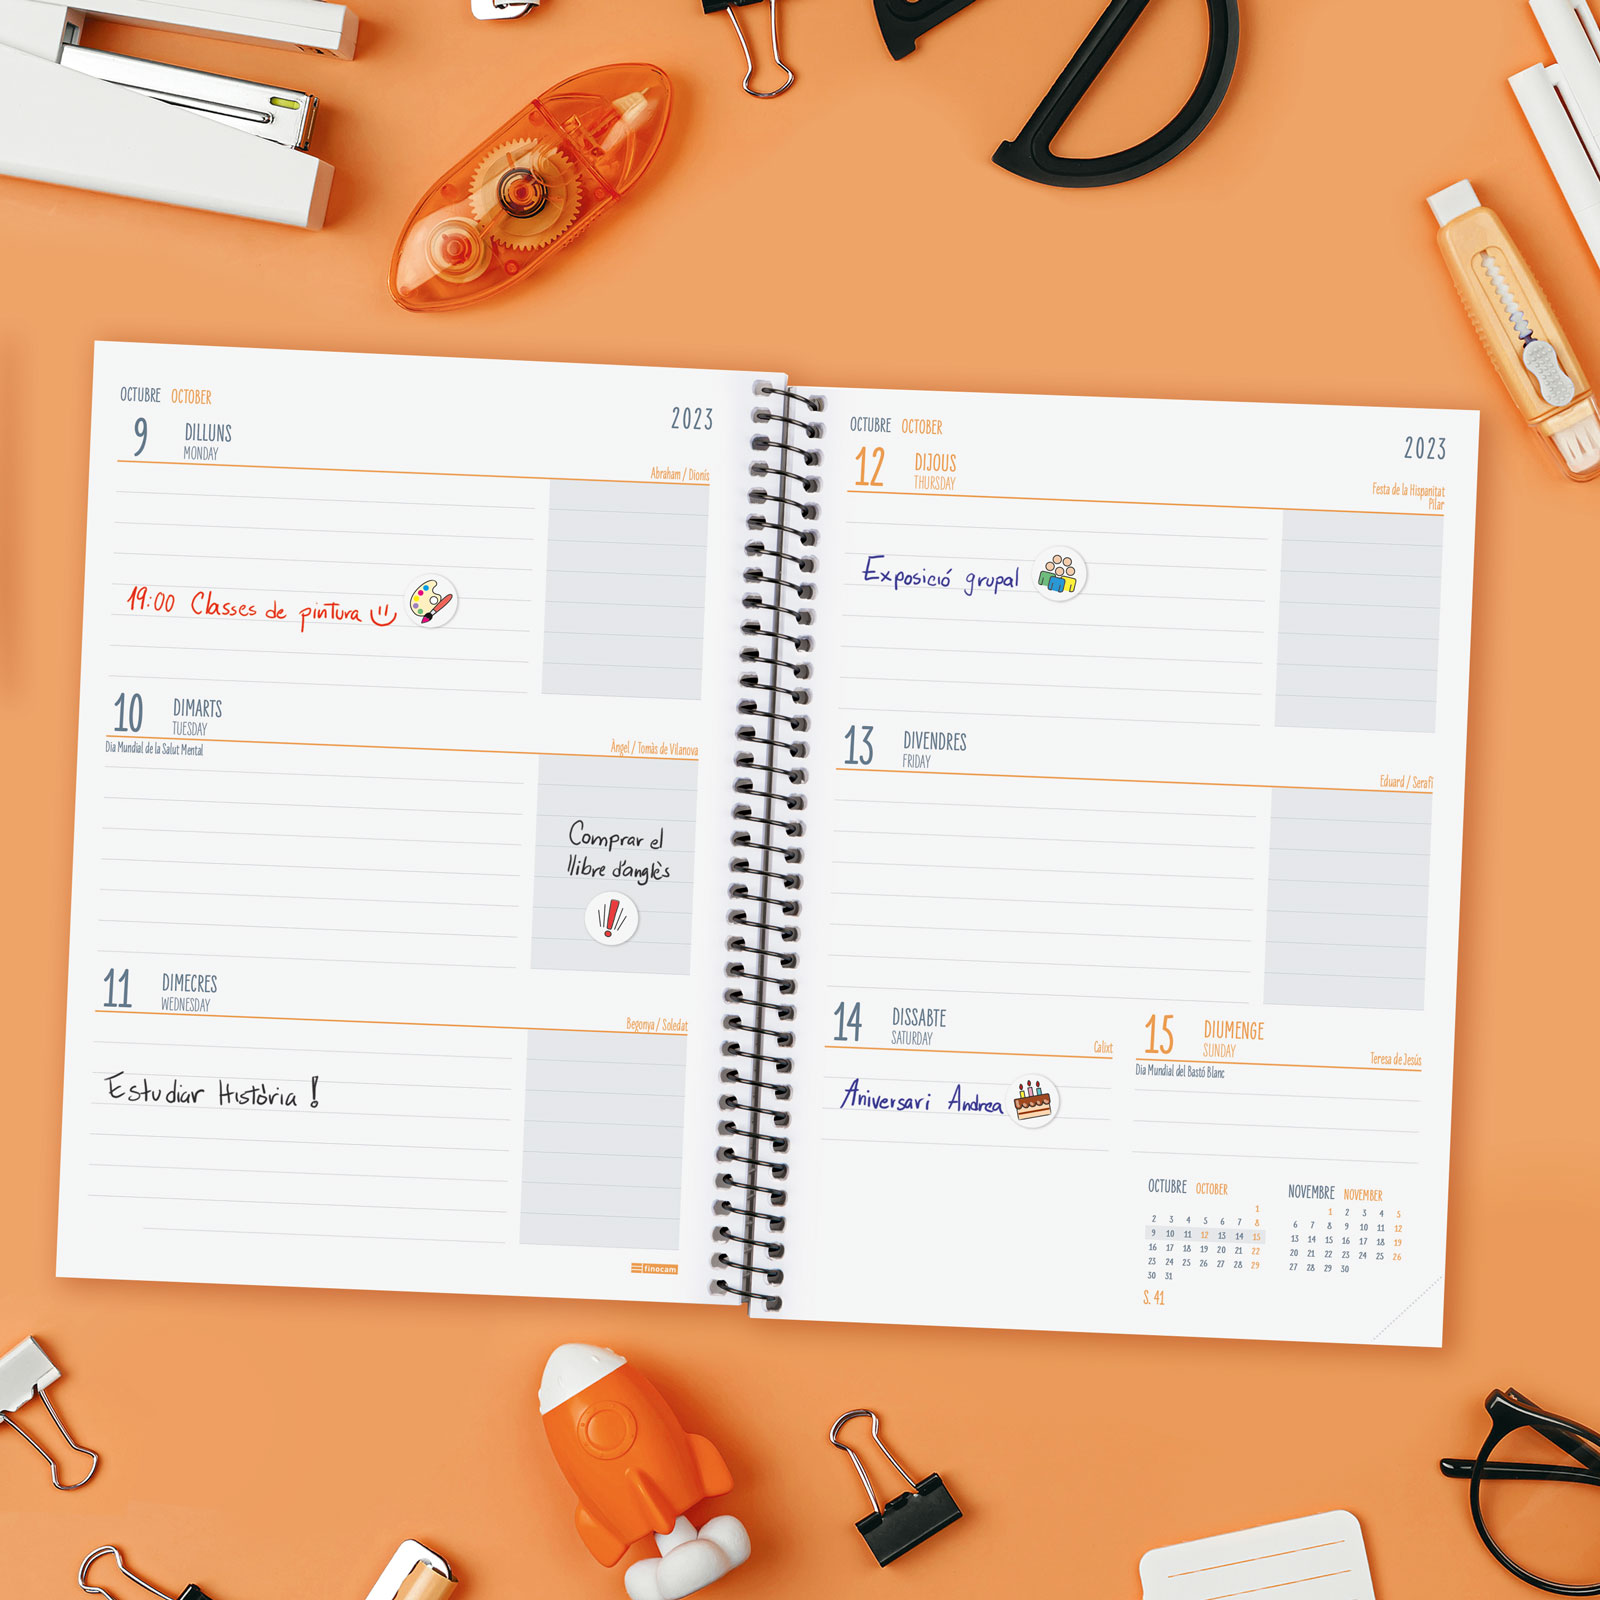 OCTUBRE OCTOBER
2023
9 DILLUNS
MONDAY
Abraham / Dionís
19:00 Classes de pintura
10 DIMARTS
TUESDAY
Dia Mundial de la Salut Mental
Àngel / Tomàs de Vilanova
Comprar el
llibre d'anglès
11 DIMECRES
WEDNESDAY
Begonya / Soledat
Estudiar Història !
finocam
OCTUBRE OCTOBER
2023
12 DIJOUS
THURSDAY
Festa de la Hispanitat
Pilar
Exposició grupal
13 DIVENDRES
FRIDAY
Eduard / Serafí
14 DISSABTE
SATURDAY
Calixt
Aniversari Andrea
15 DIUMENGE
SUNDAY
Teresa de Jesús
Dia Mundial del Bastó Blanc
OCTUBRE OCTOBER
1
2 3 4 5 6 7 8
9 10 11 12 13 14 15
16 17 18 19 20 21 22
23 24 25 26 27 28 29
30 31
S. 41
NOVEMBRE NOVEMBER
1 2 3 4 5
6 7 8 9 10 11 12
13 14 15 16 17 18 19
20 21 22 23 24 25 26
27 28 29 30